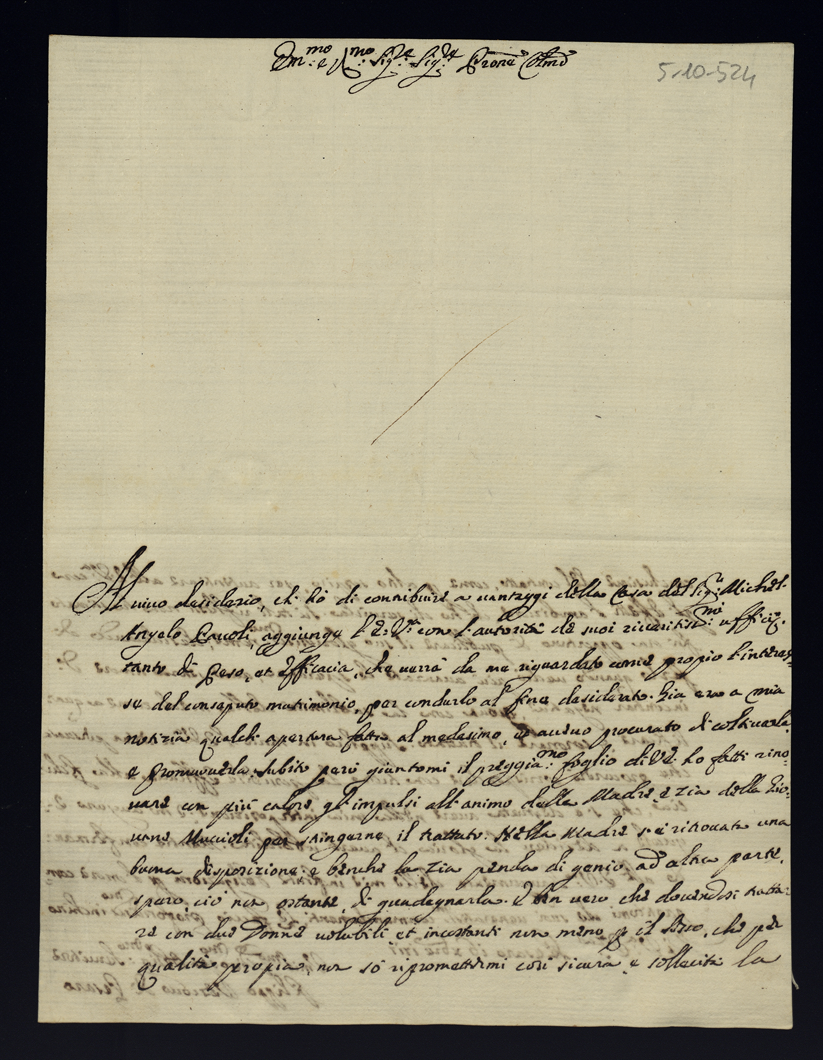 Em.mo e R.mo Sig.re Sig.re Prone Colmo
5-10-524
Al vivo desiderio, ch'hò di contribuire a vantaggi della Casa del Sig.r Michel-
Angelo Pavoli, aggiunge l'E: V.ra con l'autorità de suoi riveritis.mi uffici
tanto di Peso, et Efficacia, che verrà da me riguardato come proprio l'interes-
se del consaputo matrimonio, per condurlo al fine desiderato. Già era a mia
notizia qualch'apertura fatta al medesimo, et avevo procurato di coltivarla,
e promuoverla. Subito però giuntomi il preggia.mo foglio di V.E. hò fatti rino-
vare con più calore gl'impulsi all'animo della Madre, e zia della Gio-
vane Muccioli per stringerne il trattato. Nella Madre s'è ritrovata una
buona disposizione, e benche la Zia penda di genio ad altra parte,
spero, ciò non ostante, di guadagnarla. È ben vero che dovendosi tratta-
re con due Donne volubili, et incostanti non meno p il sesso, che per
qualità propria, non sò ripromettermi così sicura e sollecita la